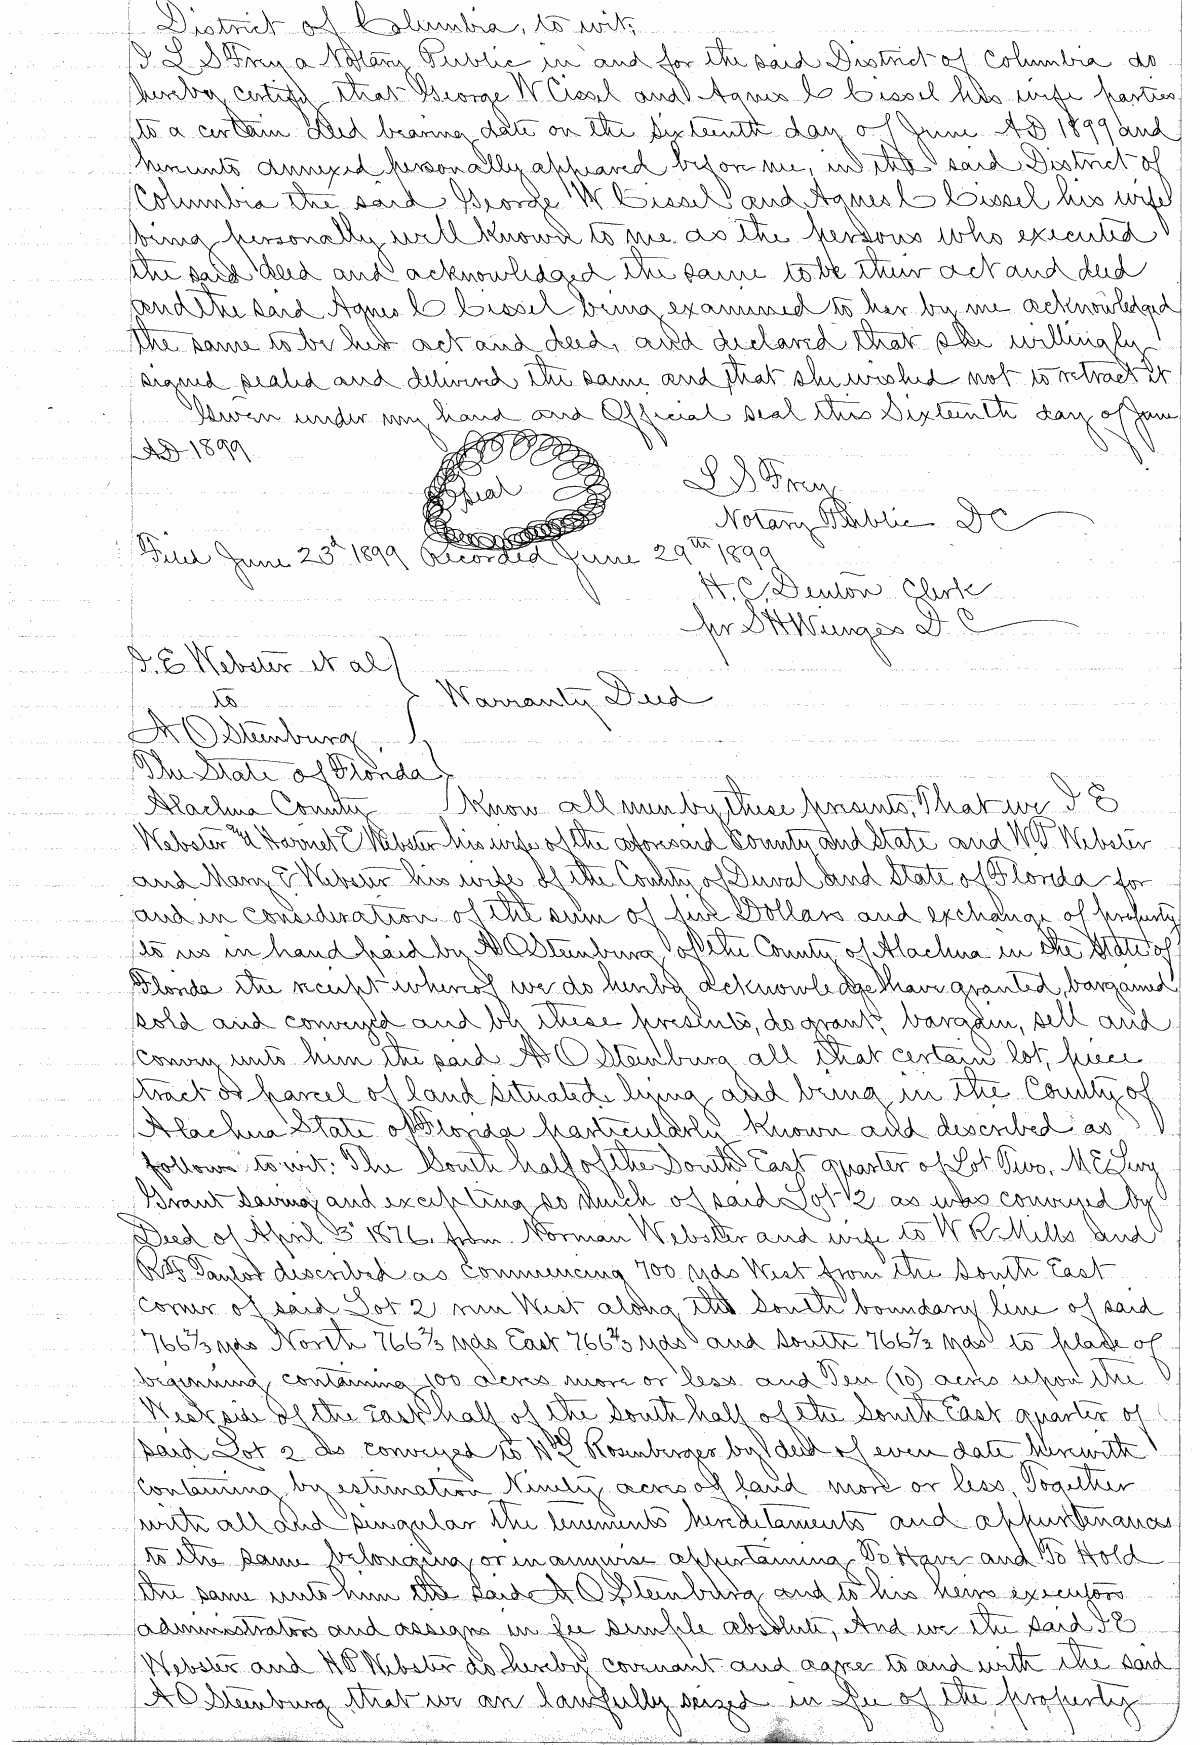 District of Columbia, to wit;
I L S Frey a Notary Public in and for the said District of Columbia do
hereby certify that George W Cissel and Agnes C Cissel his wife parties
to a certain deed bearing date on the Sixteenth day of June AD 1899 and
hereunto annexed personally appeared before me, in the said District of
Columbia the said George W Cissel and Agnes C Cissel his wife
being personally well known to me as the persons who executed
the said deed and acknowledged the same to be their act and deed
and the said Agnes C Cissel being examined to her by me acknowledged
the same to be her act and deed, and declared that she willingly
signed sealed and delivered the same and that she wished not to retract it
Given under my hand and Official seal this Sixteenth day of June
AD 1899
Seal
L S Frey
Notary Public D C
Filed June 23d 1899 Recorded June 29th 1899
H. C. Denton Clerk
pr S H Wienges D C
I. E Webster et al
to
A O Steenburg
Warranty Deed
The State of Florida
Alachua County Know all men by these presents, That we I E
Webster and Harriet E Webster his wife of the aforesaid County and State and W P Webster
and Mary E Webster his wife of the County of Duval and State of Florida for
and in consideration of the sum of five Dollars and exchange of property
to us in hand paid by A O Steenburg of the County of Alachua in the State of
Florida the receipt whereof we do hereby acknowledge have granted, bargained
sold and conveyed and by these presents, do grant, bargain, sell and
convey unto him the said A O Steenburg all that certain lot, piece
tract or parcel of land situated lying and being in the County of
Alachua State of Florida particularly known and described as
follows to wit: The South half of the South East quarter of Lot Two, McElvey
Grant saving and excepting so much of said Lot 2 as was conveyed by
Deed of April 3" 1876, from Norman Webster and wife to W R Mills and
R F Taylor described as commencing 700 yds West from the South East
corner of said Lot 2 run West along the South boundary line of said
766 2/3 yds North 766 2/3 yds East 766 2/3 yds and South 766 2/3 yds to place of
beginning containing 100 acres more or less and Ten (10) acres upon the
West side of the East half of the South half of the South East quarter of
said Lot 2 as conveyed to Rosenberger by deed of even date herewith
containing by estimation Ninety acres of land more or less, Together
with all and singular the tenements hereditaments and appurtenances
to the same belonging or in anywise appertaining To Have and To Hold
the same unto him the said A O Steenburg and to his heirs executors
administrators and assigns in fee simple absolute, And we the said I E
Webster and W P Webster do hereby covenant and agree to and with the said
A O Steenburg that we are lawfully seized in fee of the property